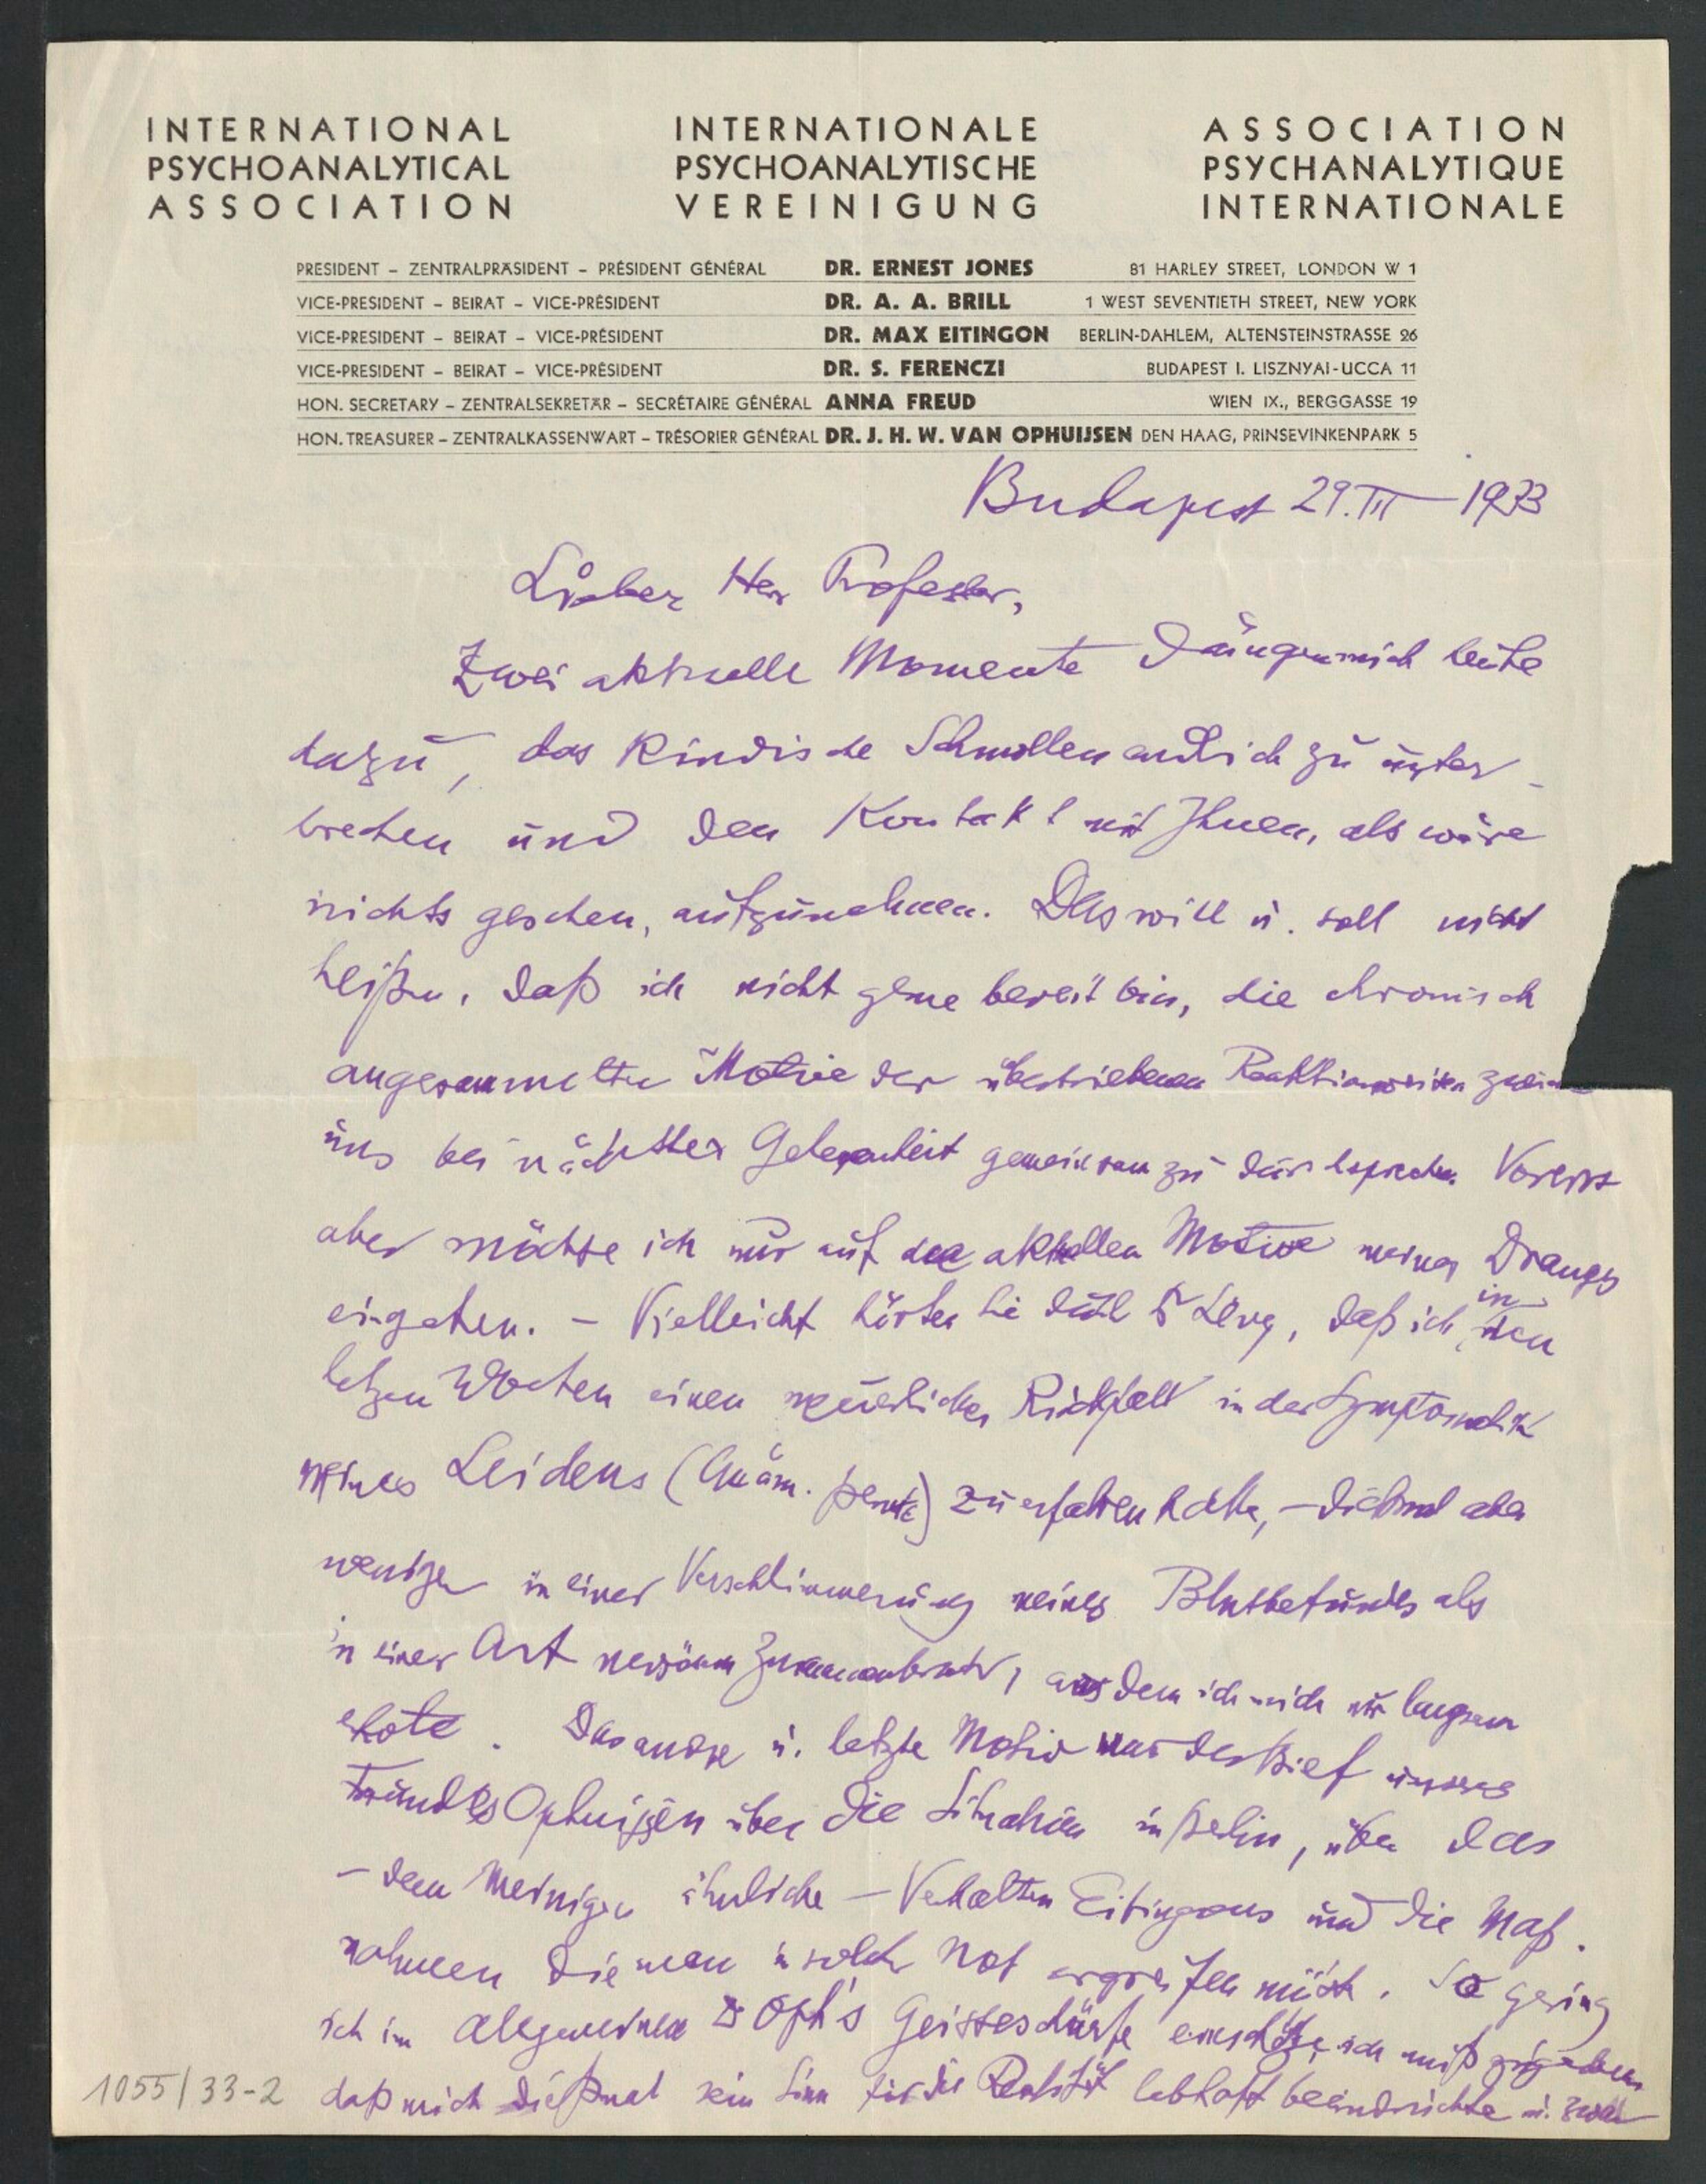 INTERNATIONAL
PSYCHOANALYTICAL
ASSOCIATION
INTERNATIONALE
PSYCHOANALYTISCHE
VEREINIGUNG
ASSOCIATION
PSYCHANALYTIQUE
INTERNATIONALE
PRESIDENT – ZENTRALPRÄSIDENT – PRÉSIDENT GÉNÉRAL DR. ERNEST JONES 81 HARLEY STREET, LONDON W 1
VICE-PRESIDENT – BEIRAT – VICE-PRÉSIDENT DR. A. A. BRILL 1 WEST SEVENTIETH STREET, NEW YORK
VICE-PRESIDENT – BEIRAT – VICE-PRÉSIDENT DR. MAX EITINGON BERLIN-DAHLEM, ALTENSTEINSTRASSE 26
VICE-PRESIDENT – BEIRAT – VICE-PRÉSIDENT DR. S. FERENCZI BUDAPEST I. LISZNYAI-UCCA 11
HON. SECRETARY – ZENTRALSEKRETÄR – SECRÉTAIRE GÉNÉRAL ANNA FREUD WIEN IX., BERGGASSE 19
HON. TREASURER – ZENTRALKASSENWART – TRÉSORIER GÉNÉRAL DR. J. H. W. VAN OPHUIJSEN DEN HAAG, PRINSEVINKENPARK 5
Budapest 29. III 1933
Lieber Herr Professor,
Zwei aktuelle Momente drängen mich heute
dazu, das kindische Schmollen endlich zu unter-
brechen und den Kontakt mit Ihnen, als wäre
nichts geschehen, aufzunehmen. Das will u. soll nicht
heißen, daß ich nicht gerne bereit bin, die chronisch
angesammelten Motive der übertriebenen
uns bei nächster Gelegenheit gemeinsam zu durchsprechen. Vorerst
aber möchte ich nur auf die aktuellen Motive meines Drangs
eingehen. – Vielleicht hörten Sie durch Dr Lévy, daß ich in den
letzten Wochen einen neuerlichen Rückfall in der Symptomatik
meines Leidens (Anäm. pernic) zu erfahren hatte, – diesmal aber
weniger in einer Verschlimmerung meines Blutbefundes als
in einer Art nervösem Zusammenbruch, aus dem ich mich nur langsam
erhole. Das andre u. letzte Motiv war der Brief unseres
Freundes Ophuijsen über die Situation in Berlin, über das
– dem Meinigen ähnliche – Verhalten Eitingons und die Maß-
nahmen die man in solcher Not ergreifen müßte. So gering
ich im allgemeinen Dr Oph's Geistesschärfe einschätze, ich muß zugeben
daß mich dießmal sein Sinn für die Realität lebhaft beeindruckte u. zwar
1055/33-2